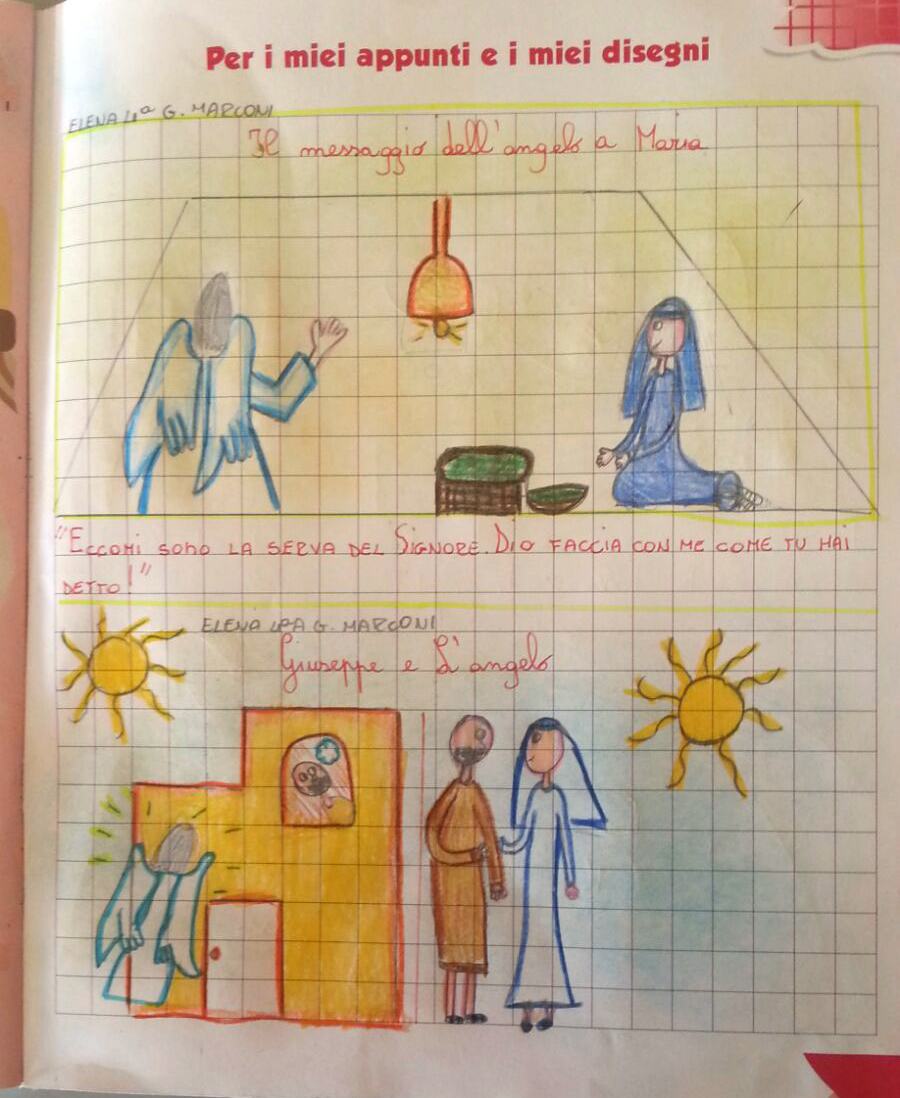 Per i miei appunti e i miei disegni
ELENA 4ª G. MARCONI
Il messaggio dell'angelo a Maria
"ECCOMI SONO LA SERVA DEL SIGNORE. DIO FACCIA CON ME COME TU HAI
DETTO!"
ELENA 4ªA G. MARCONI
Giuseppe e L'angelo